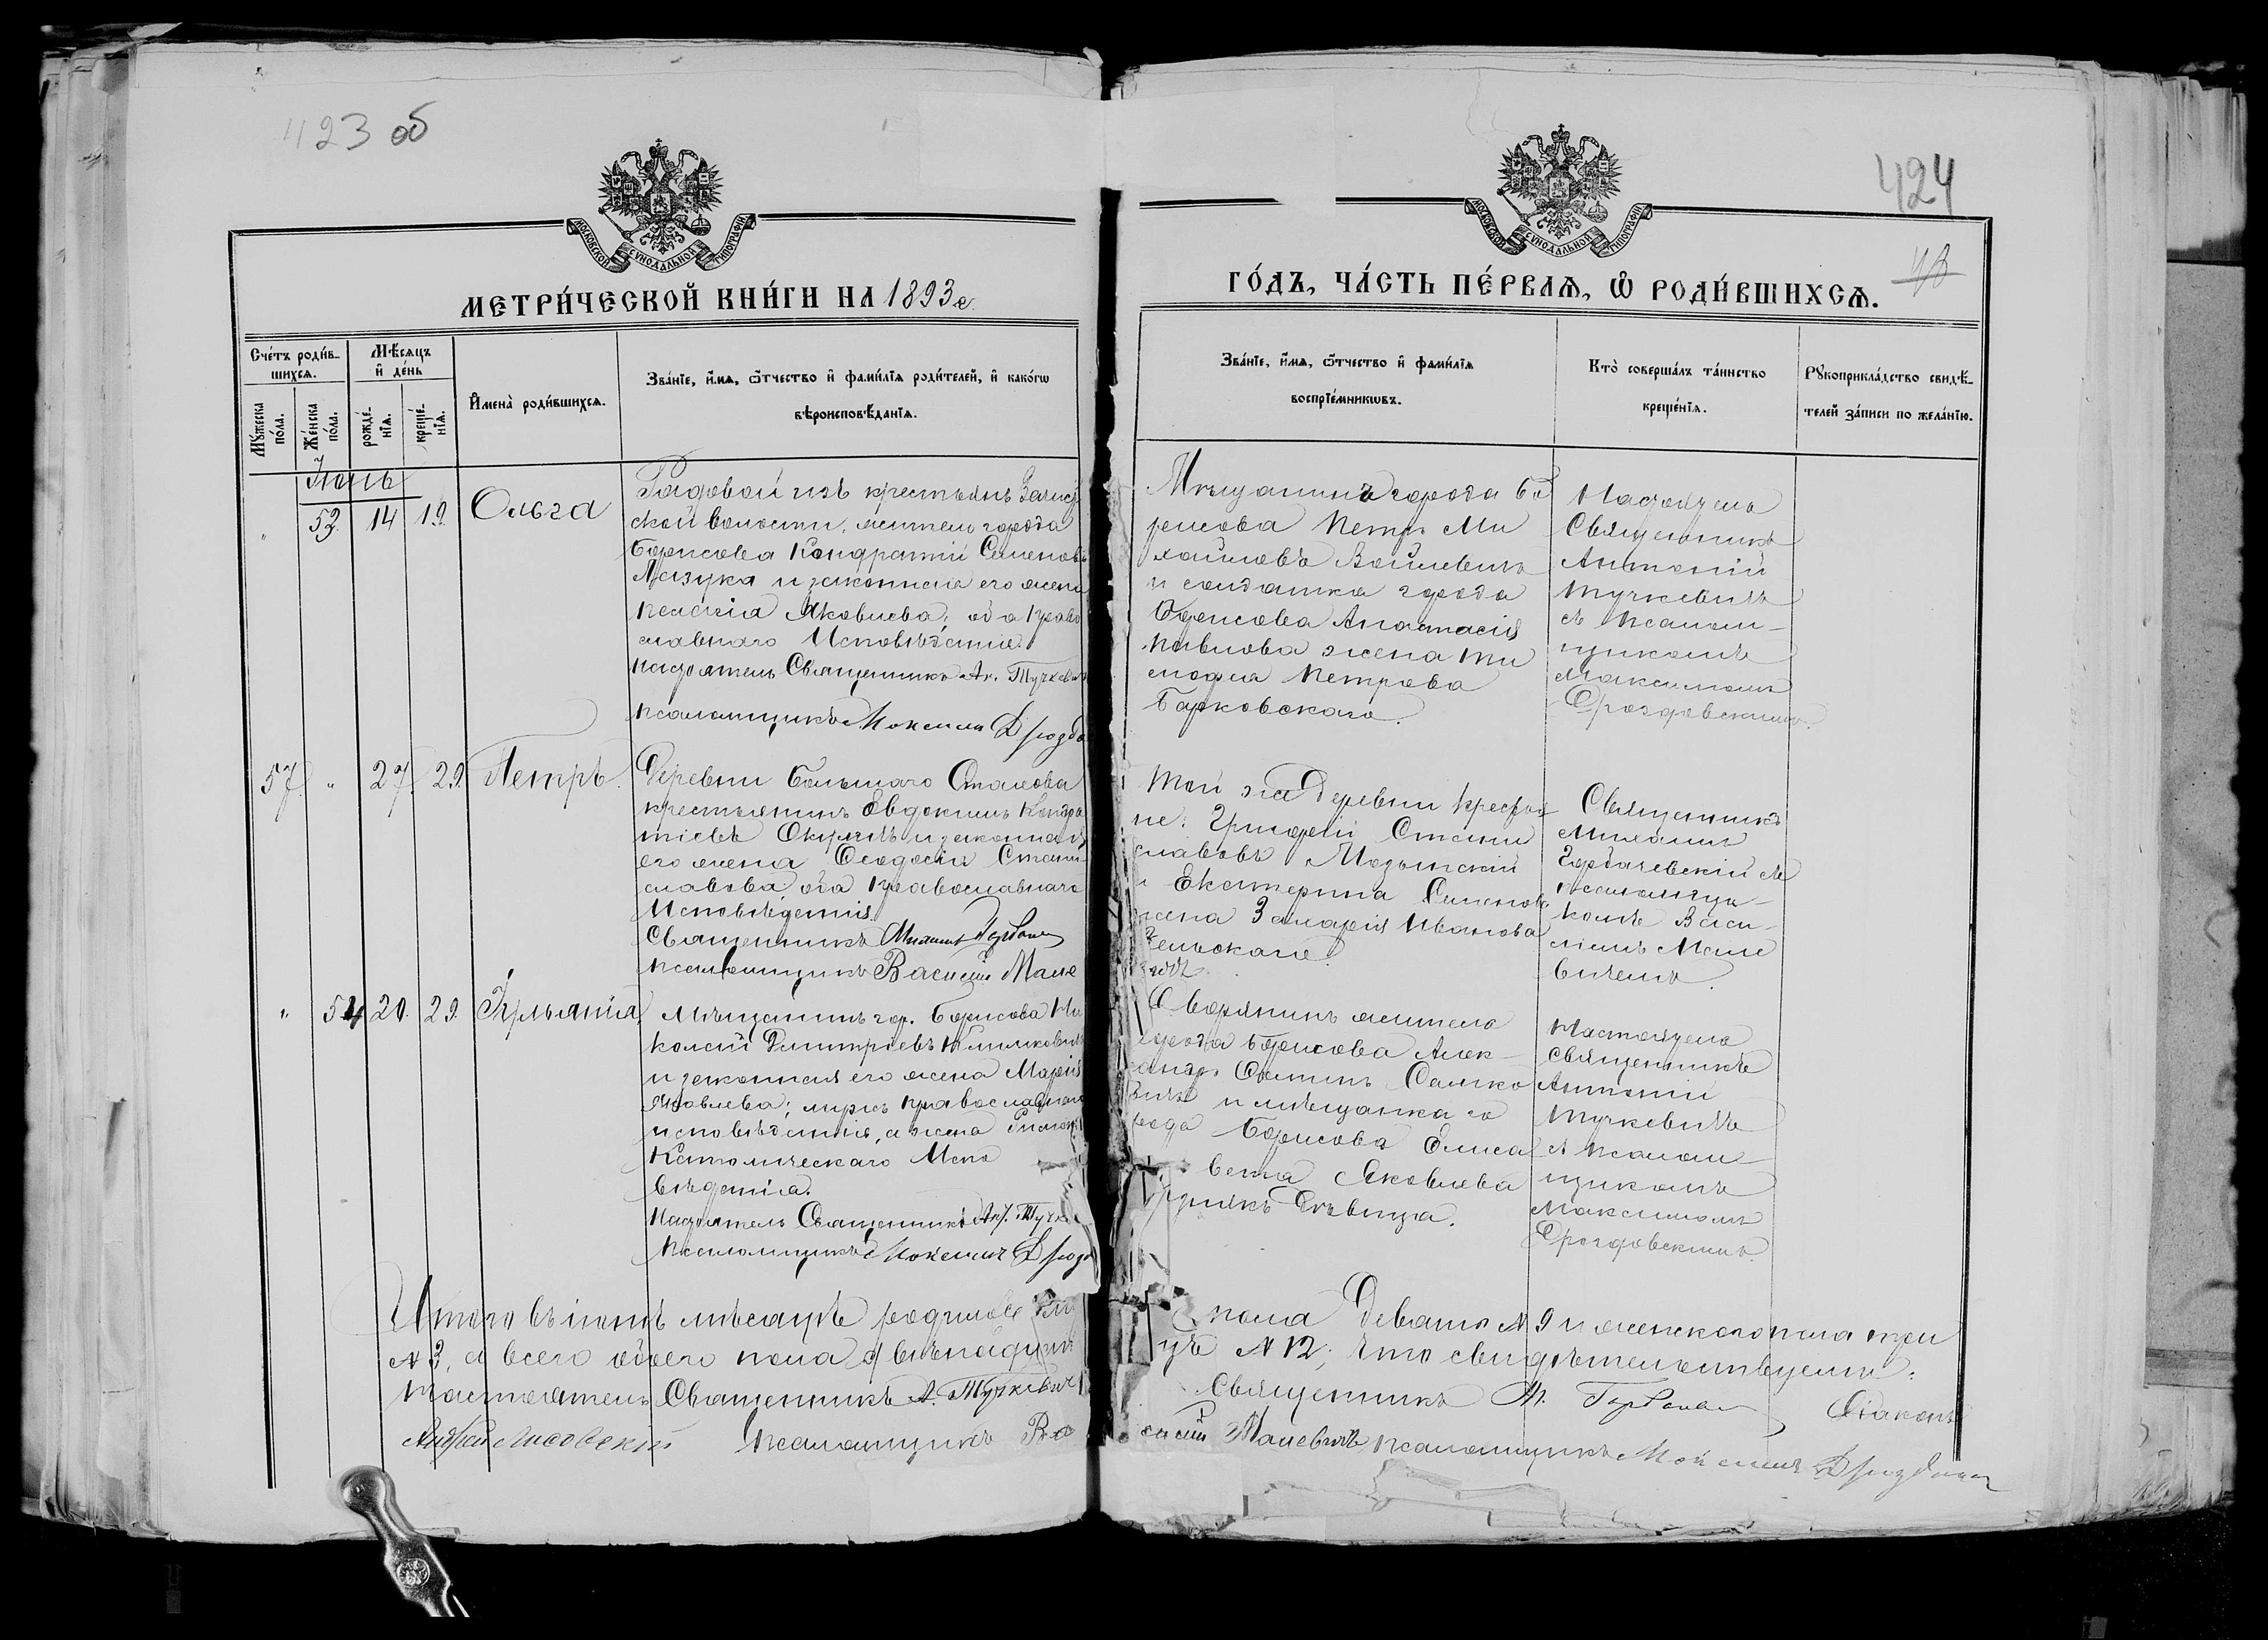 423 об
424
43
МОСКОВСКОЙ СѴНОДАЛЬНОЙ ТИПОГРАФІИ
МОСКОВСКОЙ СѴНОДАЛЬНОЙ ТИПОГРАФІИ
МЕТРИ́ЧЕСКОЙ КНИ́ГИ НА 1893 г.
ГО́ДЪ, ЧА́СТЬ ПЕ́РВАѦ, Ѡ РОДИ́ВШИХСѦ.
Сче́тъ роди́в-
шихсѧ.
Мꙋжеска по́ла.
Же́нска по́ла.
Мѣ́сѧцъ и҆ де́нь
рожде́-
нїѧ.
креще́-
нїѧ.
И҆мена̀ роди́вшихсѧ.
Зва́нїе, и҆́мѧ, ѻ҆́тчество и҆ фами́лїѧ роди́телей, и҆ како́гѡ
вѣроисповѣ́данїѧ.
Зва́нїе, и҆́мѧ, ѻ҆́тчество и҆ фами́лїѧ
воспрїе́мникѡвъ.
Кто̀ соверша́лъ та́инство
креще́нїѧ.
Рꙋкоприкла́дство свидѣ́-
телей за́писи по жела́нїю.
Іюнь
" 53. 14 19. Ольга
Рядовой изъ крестьянъ
ской волости, житель города
Борисова Кондратій Семеновъ
Мазука и законная его жена
Пелагія Яковлева; оба Право
славнаго Исповѣданія.
Настоятель Священникъ Ан. Тучкевичъ
Псаломщикъ Максимъ Дроздо
Мѣщанинъ города Бо
рисова Петръ Ми
хайловъ Войлевичъ
и солдатка города
Борисова Анастасія
Павлова жена Ти
мофея Петрова
Барковскаго.
Настоятель
Священникъ
Антоній
Тучкевичъ
съ Псалом-
щикомъ
Максимомъ
Дроздовскимъ.
57. " 27. 29. Петръ.
Деревни Большаго Стахова
крестьянинъ Евдокимъ Кондра
тіевъ и законная
его жена Ѳеодосія Стани
славова оба Православнаго
Исповѣданія.
Священникъ Михаилъ Горбаче
Псаломщикъ Василій Мале
Той же деревни крестьяне
не: Григорій Стани
славовъ
и Екатерина Семенова
жена Захарія Иванова
Священникъ
Михаилъ
Горбачевскій съ
псаломщи-
комъ Васи-
ліемъ Мале
вичемъ.
" 54 20. 29. Іуліанія,
Мѣщанинъ гор. Борисова Ни
колай Димитріевъ Климковичъ
и законная его жена Марія
Яковлева; мужъ православнаго
исповѣданія, а жена Римско
Католическаго Испо
вѣданія.
Настоятель Священникъ Ан. Тучке
Псаломщикъ Максимъ Дрозд
Дворянинъ житель
города Борисова Алек-
сандръ Ѳоминъ
и мѣщанка го
рода Борисова Елиса
вета Яковлева
дѣвица.
Настоятель
Священникъ
Антоній
Тучкевичъ
съ Псалом-
щикомъ
Максимомъ
Дроздовскимъ.
Итого въ іюнѣ мѣсяцѣ родилось
пола девять № 9 и женскаго пола три
№ 3, а всего обоего пола двѣнадцать
№ 12; что свидѣтельствуемъ:
Настоятель Священникъ А. Тучкевичъ
Священникъ М. Горбачев Діаконъ
Андрей Лисовскій Псаломщикъ Ва
силій Малевичъ Псаломщикъ Максимъ Дроздовск